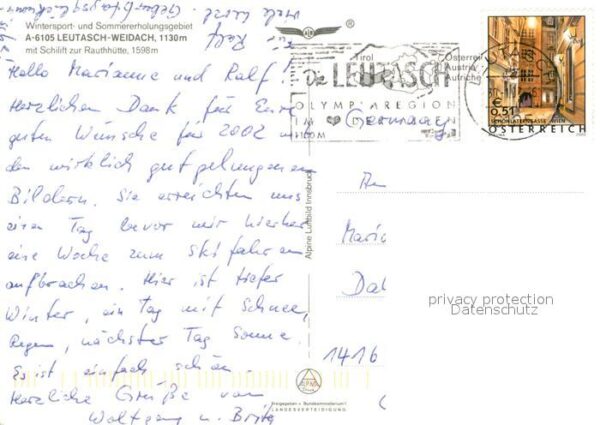 Wintersport- und Sommererholungsgebiet
A-6105 LEUTASCH-WEIDACH, 1130m
mit Schilift zur Rauthhütte, 1598m
Hallo Marianne und Ralf!
Herzlichen Dank für Eure
guten Wünsche für 2002 mit
den wirklich gut gelungenen
Bildern. Sie erreichten uns
einen Tag bevor wir hierher
eine Woche zum Skifahren
aufbrachen. Hier ist tiefer
Winter, ein Tag mit Schnee,
Regen, nächster Tag Sonne.
Es ist einfach schön.
Herzliche Grüße von
Wolfgang u.
für Ralf
Alpine Luftbild Innsbruck
Freigegeben v. Bundesministerium f.
LANDESVERTEIDIGUNG
Tirol
Österreich
Austria
Autriche
Die LEUTASCH
OLYMPIAREGION
IM
1100M
Germany
€
0,51
WIEN
ÖSTERREICH
An
1416
privacy protection
Datenschutz